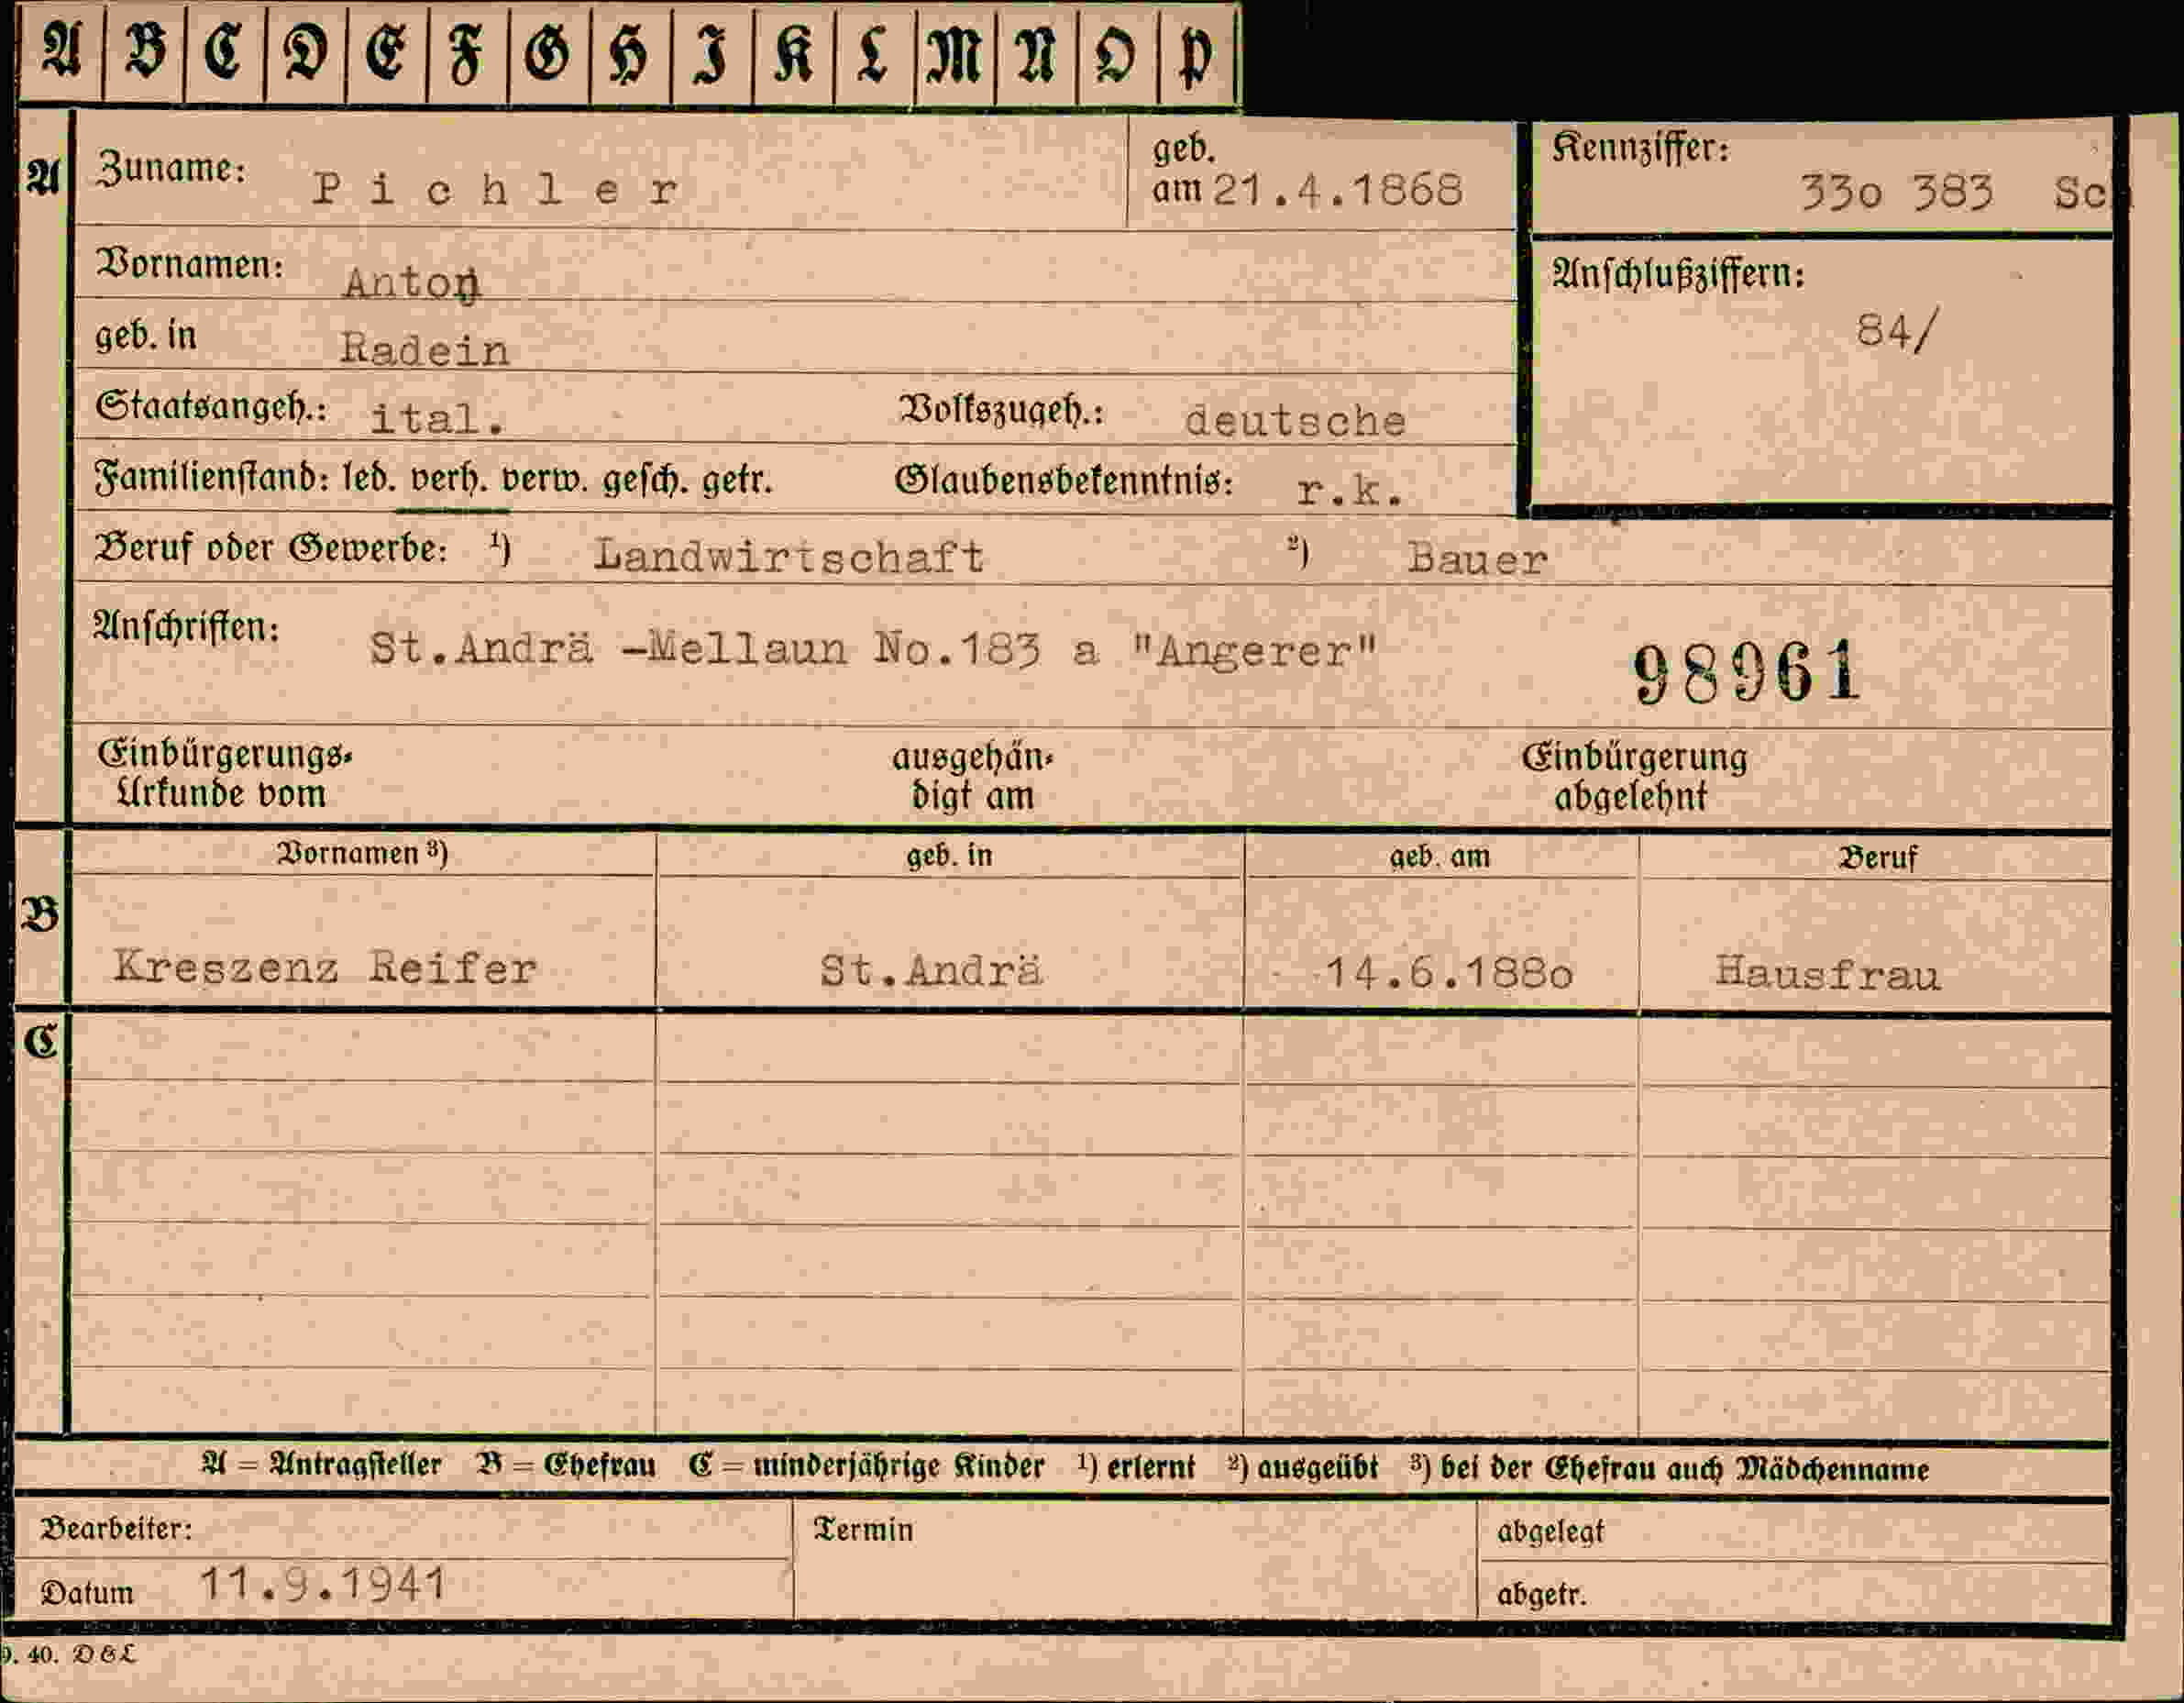 A B C D E F G H I K L M N O P
A Zuname: Pichler geb. am 21.4.1868 Kennziffer: 33o 383 Sch
Vornamen: Anton Anschlußziffern:
geb. in Radein 84/
Staatsangeh.: ital. Volkszugeh.: deutsche
Familienstand: led. verh. verw. gesch. getr. Glaubensbekenntnis: r.k.
Beruf oder Gewerbe: ¹) Landwirtschaft ²) Bauer
Anschriften: St.Andrä -Mellaun No.183 a "Angerer" 98961
Einbürgerungs- ausgehän- Einbürgerung
Urkunde vom digt am abgelehnt
Vornamen ³) geb. in geb. am Beruf
B
Kreszenz Reifer St.Andrä 14.6.188o Hausfrau
C
A = Antragsteller B = Ehefrau C = minderjährige Kinder ¹) erlernt ²) ausgeübt ³) bei der Ehefrau auch Mädchenname
Bearbeiter: Termin abgelegt
Datum 11.9.1941 abgetr.
9. 40. D&L